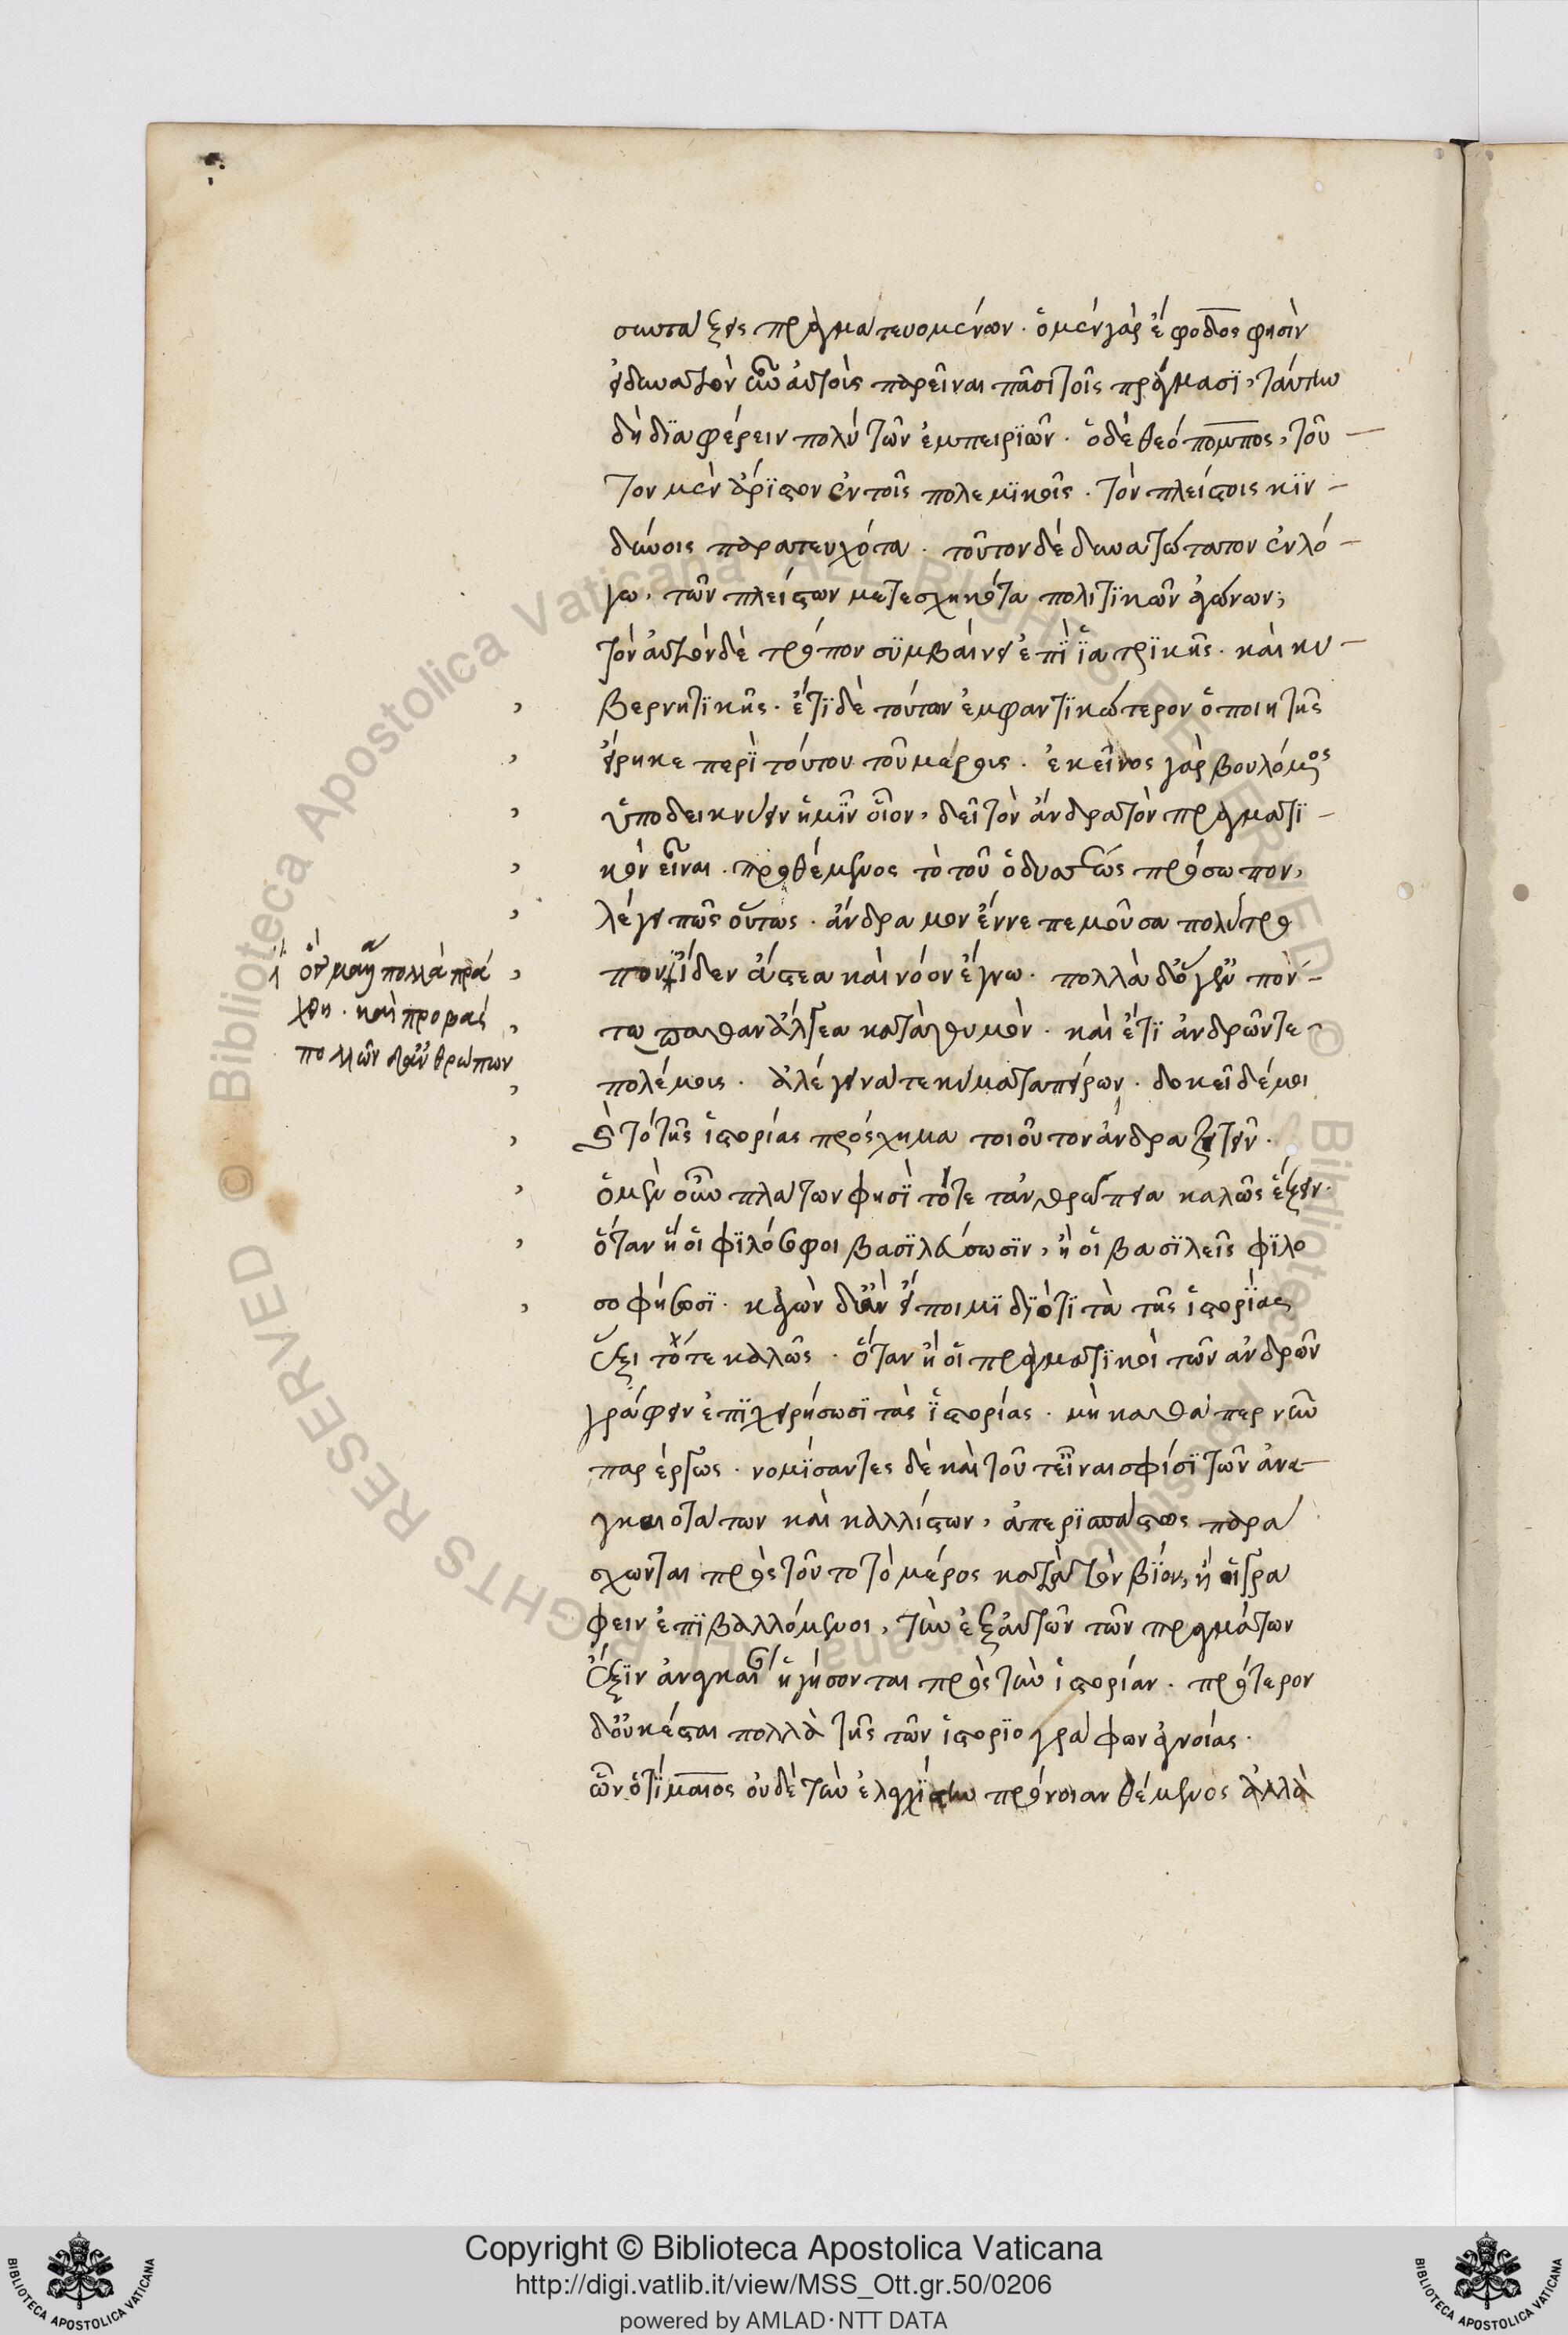 συντάξεις πραγματευομένων. ὁ μὲν γὰρ ἔφοδος φησὶν
εἰ δυνατὸν ἦν αὐτοὺς παρεῖναι πᾶσι τοῖς πράγμασϊ, ταύτην
δὴ δϊαφέρειν πολὺ τῶν ἐμπειρϊῶν. ὁ δὲ θεόπομπος, τοῦ
τον μὲν ἄρϊστον ἐν τοῖς πολεμϊκοῖς. τὸν πλείστοις κϊν
δύνοις παρατευχότα. τοῦτον δὲ δυνατώτατον ἐν λό
γω. τῶν πλείστων μετεσχηκότα πολιτϊκῶν ἀγώνων,
τὸν αὐτὸν δὲ τρόπον σϋμβαίνει ἐπὶ ἰατρϊκῆς. καὶ κυ
βερνητϊκῆς. ἔτϊ δὲ τούτων ἐμφαντϊκώτερον ὁ ποιητὴς
εἴρηκε περὶ τούτου τοῦ μέρους. ἐκεῖνος γὰρ βουλόμενος
ὑποδεικνύειν ἡμῖν οἷον, δεῖ τὸν ἄνδρα τὸν πραγματϊ
κὸν εἶναι. προθέμενος τὸ τοῦ ὀδυσσέως πρόσωπον,
λέγει πῶς οὕτως. ἄνδρα μοι ἔννεπε μοῦσα πολύτρο
πον ἴδεν ἄστεα καὶ νόον ἔγνω. πολλὰ δ' ὅγ' ἐν πόν
τω πάθαν ἄλγεα κατὰ θυμὸν. καὶ ἔτϊ ἀνδρῶν τε
πολέμους. ἀλεγεινά τε κύματα πείρων. δοκεῖ δέ μοι
καὶ τὸ τῆς ἱστορίας πρόσχημα τοιοῦτον ἄνδρα ζητεῖν.
ὁ μὲν οὖν πλάτων φησὶ τότε τἀνθρώπεια καλῶς ἕξειν.
ὅταν ἢ οἱ φϊλόσοφοι βασϊλεύσωσϊν, ἢ οἱ βασϊλεῖς φϊλο
σοφήσωσϊ. κἀγὼ δ' ἂν εἴποιμϊ δϊότϊ τὰ τῆς ἱστορϊας
ἕξει τότε καλῶς. ὅταν ἢ οἱ πραγματϊκοὶ τῶν ἀνδρῶν
γράφειν ἐπϊχειρήσωσϊ τὰς ἱστορίας. μὴ καθάπερ νῦν
παρέργως. νομϊσαντες δὲ καὶ τοῦτ' εἶναι σφίσϊ τῶν ἀνα
γκαιοτάτων καὶ καλλίστων, ἀπερϊσπάστως παρά
σχωνται πρὸς τοῦτο τὸ μέρος κατὰ τὸν βίον, ἢ οἱ γρά
φειν ἐπϊβαλλόμενοι, τὴν ἐξ αὐτῶν τῶν πραγμάτων
ἕξϊν ἀναγκαίαν ἡγήσονται πρὸς τὴν ἱστορίαν. πρότερον
δ' οὐκ ἔσται πολλὰ τῆς τῶν ἱστορϊογράφων ἀγνοίας.
ὧν ὁ τίμαιος οὐδὲ τὴν ἐλαχίστην πρόνοιαν θέμενος ἀλλὰ
ὃς μάλα πολλὰ πλά
χθη. καὶ προβὰς
πολλῶν δ' ἀνθρώπων
Copyright © Biblioteca Apostolica Vaticana
http://digi.vatlib.it/view/MSS_Ott.gr.50/0206
powered by AMLAD·NTT DATA